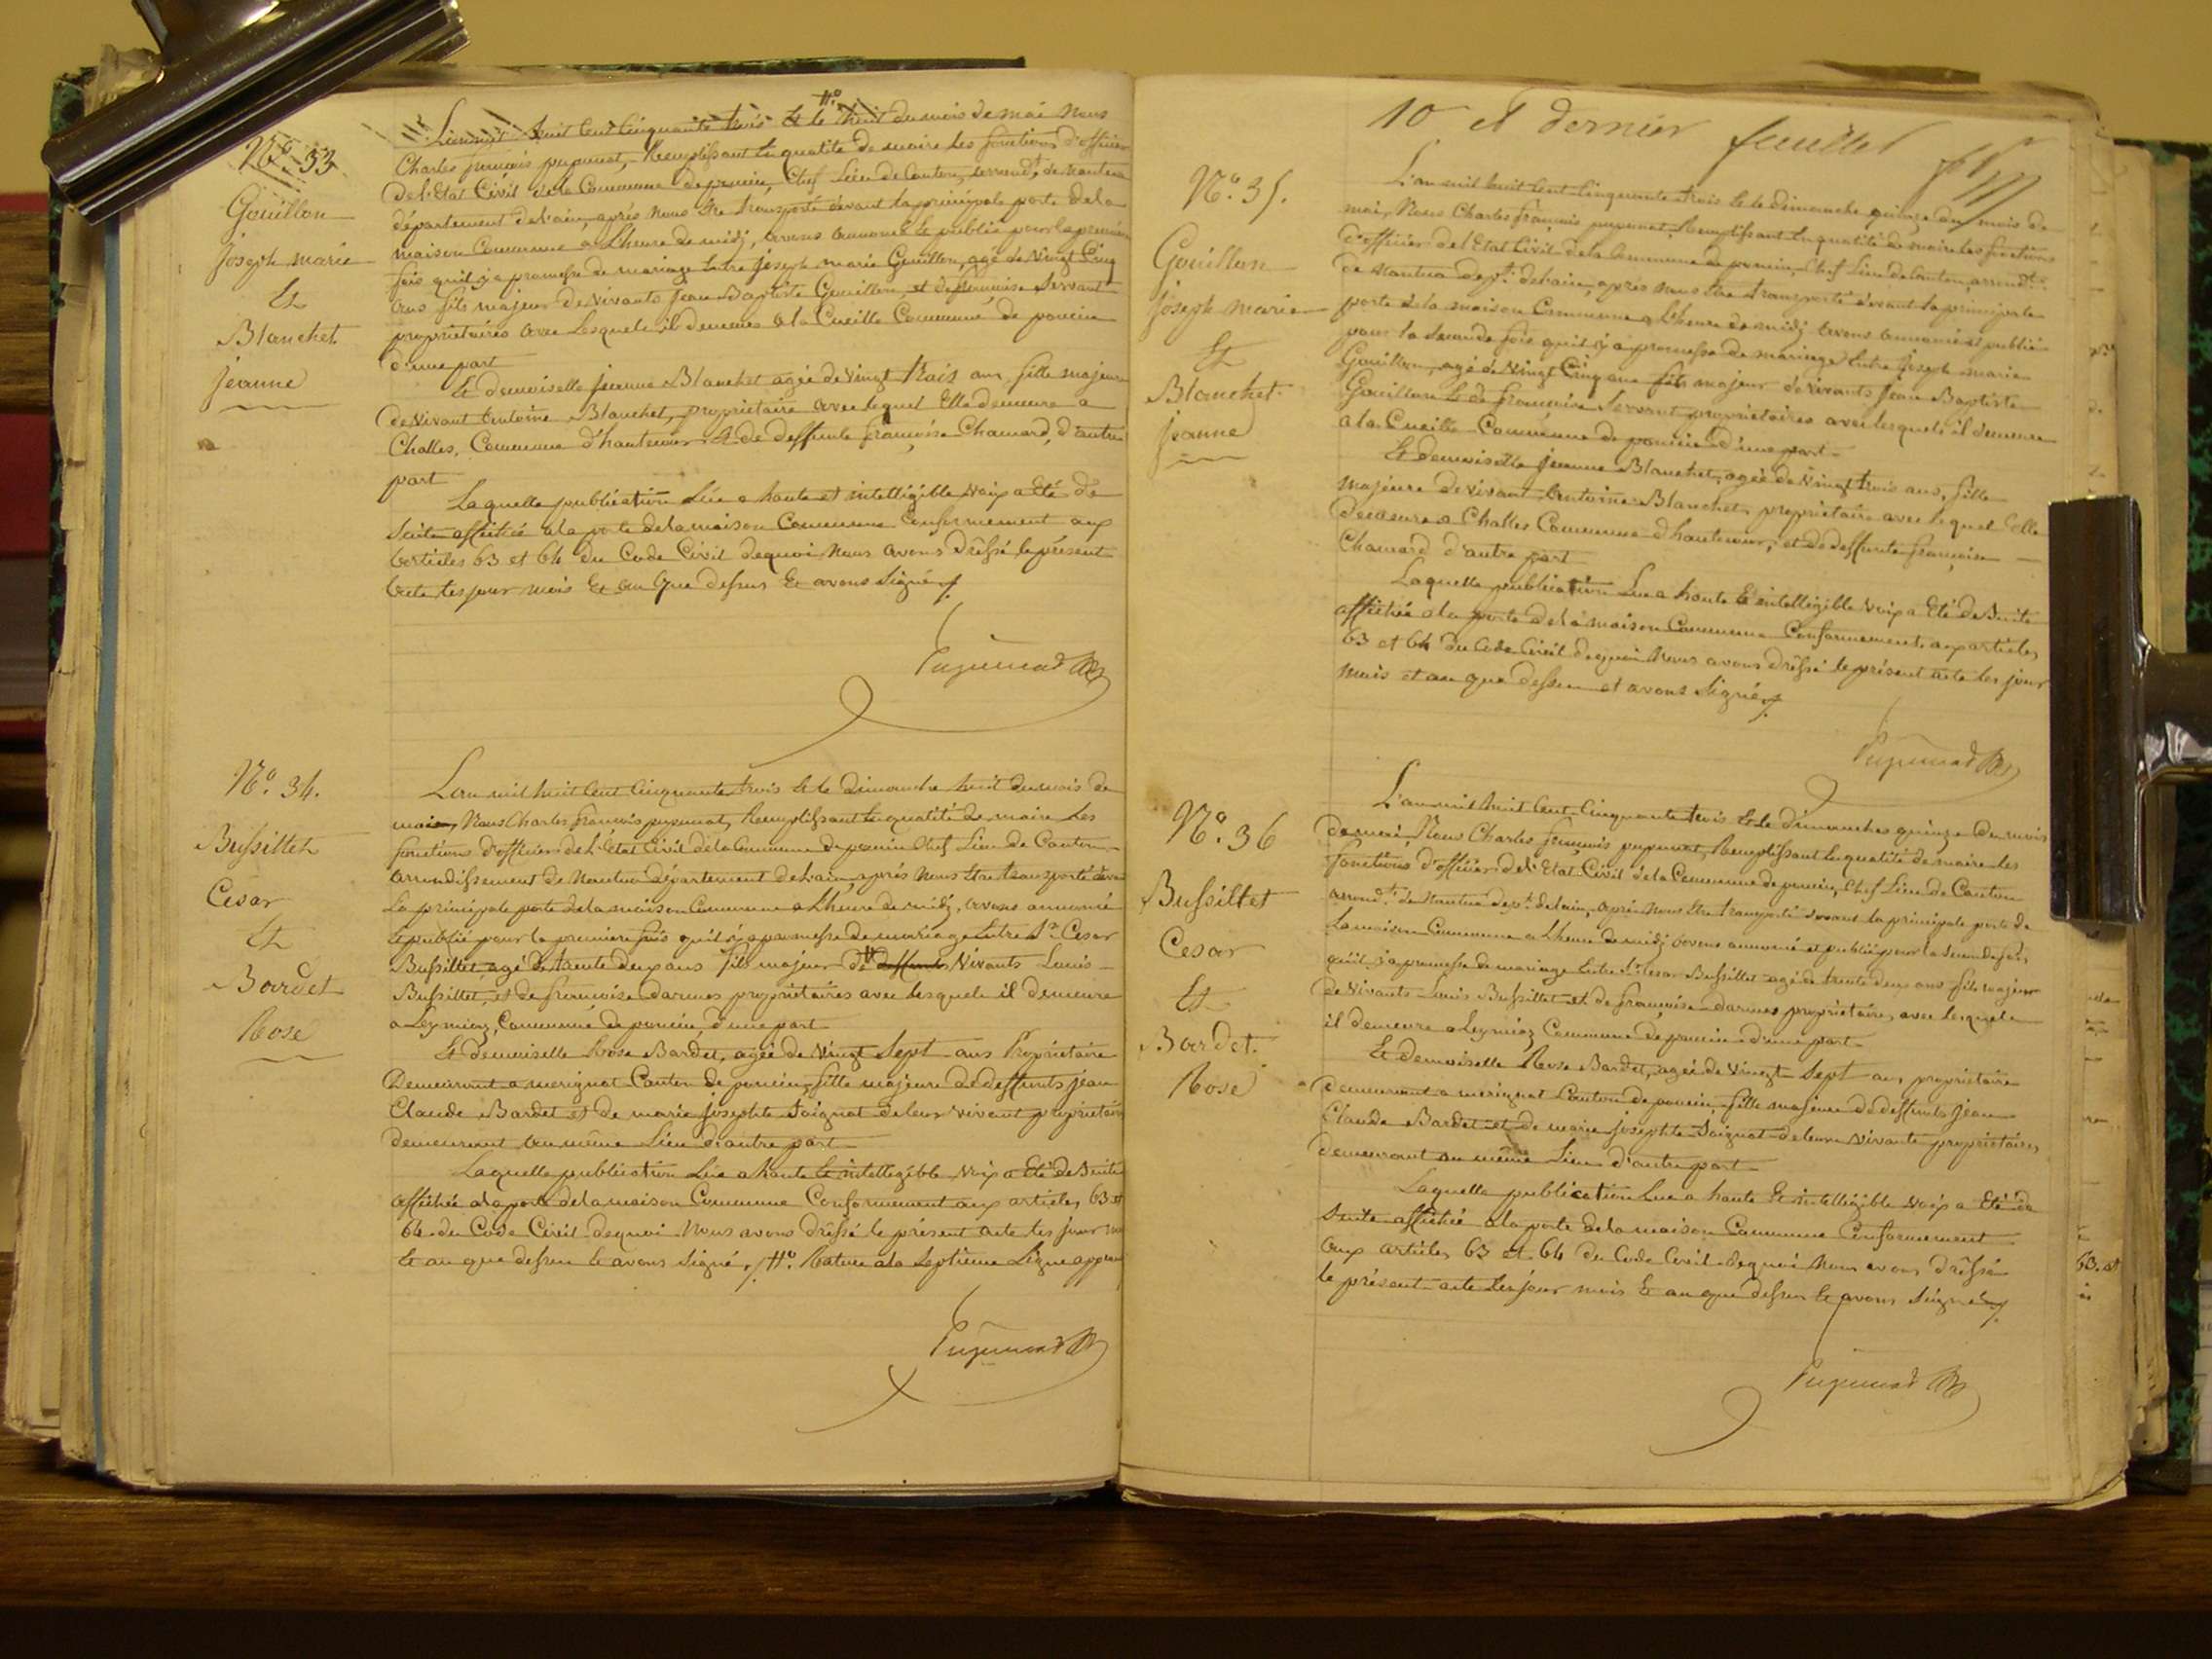 N° 33
Gouillon
Joseph marie
Et
Blanchet
jeanne
L'an mil huit Cent Cinquante trois Et le huit du mois de mai Nous
Charles françois pupunat, Remplissant En qualité de maire les fonctions d'officier
de l'Etat Civil de la Commune de poncin, Chef Lieu de Canton, arrond.t de Nantua
département de l'ain, après Nous être transporté devant la principale porte de la
maison Commune a L'heure de midi, avons annoncé Et publié pour la première
fois qu'il y a promesse de mariage Entre Joseph marie Gouillon, agé de Vingt Cinq
ans fils majeur de vivants Jean Baptiste Gouillon et de françoise Servant
propriétaires avec Lesquels il demeure a la Cueille Commune de poncin
d'une part
Et demoiselle Jeanne Blanchet agée de Vingt trois ans, fille majeure
de Vivant Antoine Blanchet, propriétaire avec lequel Elle demeure a
Challes, Commune d'hautecour, Et de deffunte françoise Chanard, d'autre
part
Laquelle publication Lue a haute et intelligible voix a Eté de
Suite affichée a la porte de la maison Commune Conformement aux
Articles 63 et 64 du Code Civil dequoi Nous avons drêssé le présent
Acte les jour mois Et an que dessus Et avons Signé ./.
N° 34.
Bussillet
Cesar
Et
Bardet
Rose
L'an mil huit Cent Cinquante trois Et le dimanche huit du mois de
mai, Nous Charles françois pupunat, Remplissant En qualité de maire Les
fonctions d'officier de L'Etat Civil de la Commune de poncin Chef Lieu de Canton
arrondissement de Nantua département de l'ain, après Nous être transporté devant
La principale porte de la maison Commune a L'heure de midi, avons annoncé
Et publié pour la première fois qu'il y a promesse de mariage Entre S.r Cesar
Bussillet agé de trente deux ans fils majeur de deffunts Vivants Louis
Bussillet, et de françoise darmes propriétaires avec lesquels il demeure
a Leymiaz, Commune de poncin, d'une part
Et demoiselle Rose Bardet, agée de Vingt Sept ans Propriétaire
Demeurant a merignat Canton de poncin, fille majeure de deffunts jean
Claude Bardet et de marie josephte Soignat de leur vivant propriétaires
demeurant au même Lieu d'autre part
Laquelle publication Lue a haute Et intelligible Voix a Eté de Suite
affichée a la porte de la maison Commune Conformement aux articles 63 et
64 du Code Civil dequoi Nous avons drêssé le présent acte les jour
Et an que dessus Et avons Signé ./. Rature a la Septième Ligne
10 et dernier feuillet
N° 35.
Gouillon
Joseph marie
Et
Blanchet
Jeanne
L'an mil huit Cent Cinquante trois Et le dimanche quinze du mois de
mai, Nous Charles françois pupunat, Remplissant En qualité de maire les fonctions
d'officier de l'Etat Civil de la Commune de poncin, Chef Lieu de Canton, arrond.t
de Nantua dep.t de l'ain, après nous être transporté devant la principale
porte de la maison Commune a L'heure de midi avons annoncé et publié
pour la Seconde fois qu'il y a promesse de mariage Entre Joseph marie
Gouillon, agé de Vingt Cinq ans fils majeur de vivants Jean Baptiste
Gouillon Et de françoise Servant propriétaires avec lesquels il demeure
a la Cueille Commune de poncin d'une part
Et demoiselle Jeanne Blanchet, agée de Vingt trois ans, fille
majeure de vivant Antoine Blanchet propriétaire avec lequel Elle
Demeure a Challes Commune d'hautecour, et de deffunte françoise
Chanard d'autre part
Laquelle publication Lue a haute Et intelligible Voix a Eté de Suite
affichée a la porte de la maison Commune Conformement aux articles
63 et 64 du Code Civil dequoi Nous avons drêssé le présent acte les jour
mois et an que dessus et avons Signé ./.
N° 36
Bussillet
Cesar
Et
Bardet.
Rose
L'an mil huit Cent Cinquante trois Et le dimanche quinze du mois
de mai, Nous Charles françois pupunat, Remplissant En qualité de maire les
fonctions d'officier de l'Etat Civil de la Commune de poncin, Chef Lieu de Canton
arrond.t de Nantua dep.t de l'ain, après Nous être transporté devant la principale porte de
La maison Commune a L'heure de midi avons annoncé et publié pour la Seconde fois
qu'il y a promesse de mariage Entre S.r Cesar Bussillet agé de trente deux ans fils majeur
de Vivants Louis Bussillet et de françoise darmes propriétaires avec lesquels
il demeure a Leymiaz Commune de poncin d'une part
Et demoiselle Rose Bardet, agée de Vingt Sept ans, propriétaire
demeurant a merignat Canton de poncin, fille majeure de deffunts Jean
Claude Bardet et de marie josephte Soignat de leurs vivants propriétaires
demeurant au même Lieu d'autre part
Laquelle publication Lue a haute Et intelligible Voix a Eté de
Suite affichée a la porte de la maison Commune Conformement
aux articles 63 et 64 du Code Civil dequoi Nous avons drêssé
le présent acte les jour mois Et an que dessus Et avons Signé ./.
63. et